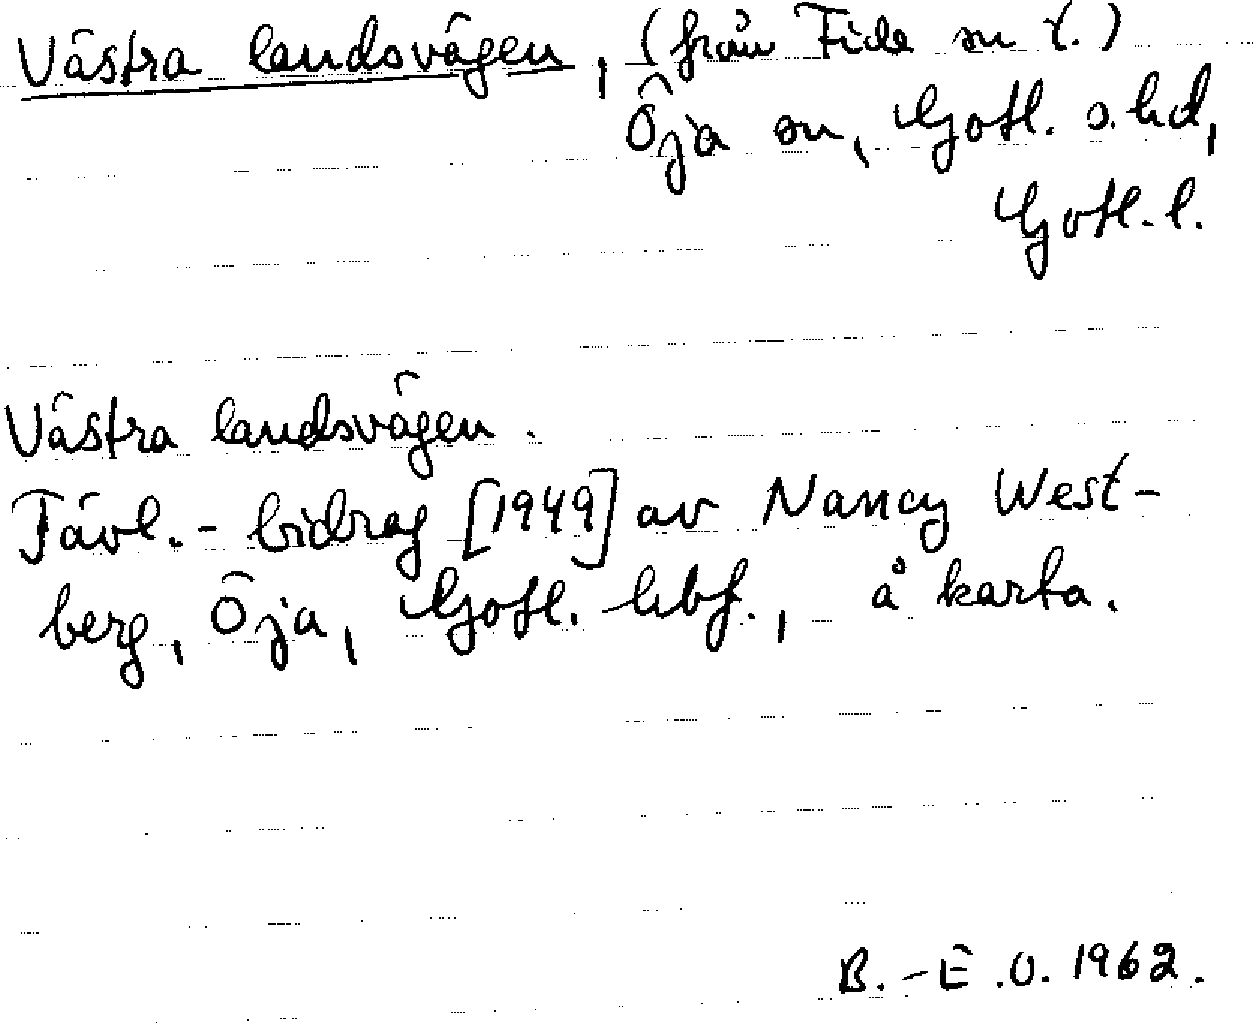 Västra landsvägen, (från Fide sn t.)
Öja sn, Gotl. s. hd,
Gotl. l.
Västra landsvägen.
Tävl.-bidrag [1949] av Nancy West-
berg, Öja, Gotl. hbf., å karta.
B.-E.O. 1962.